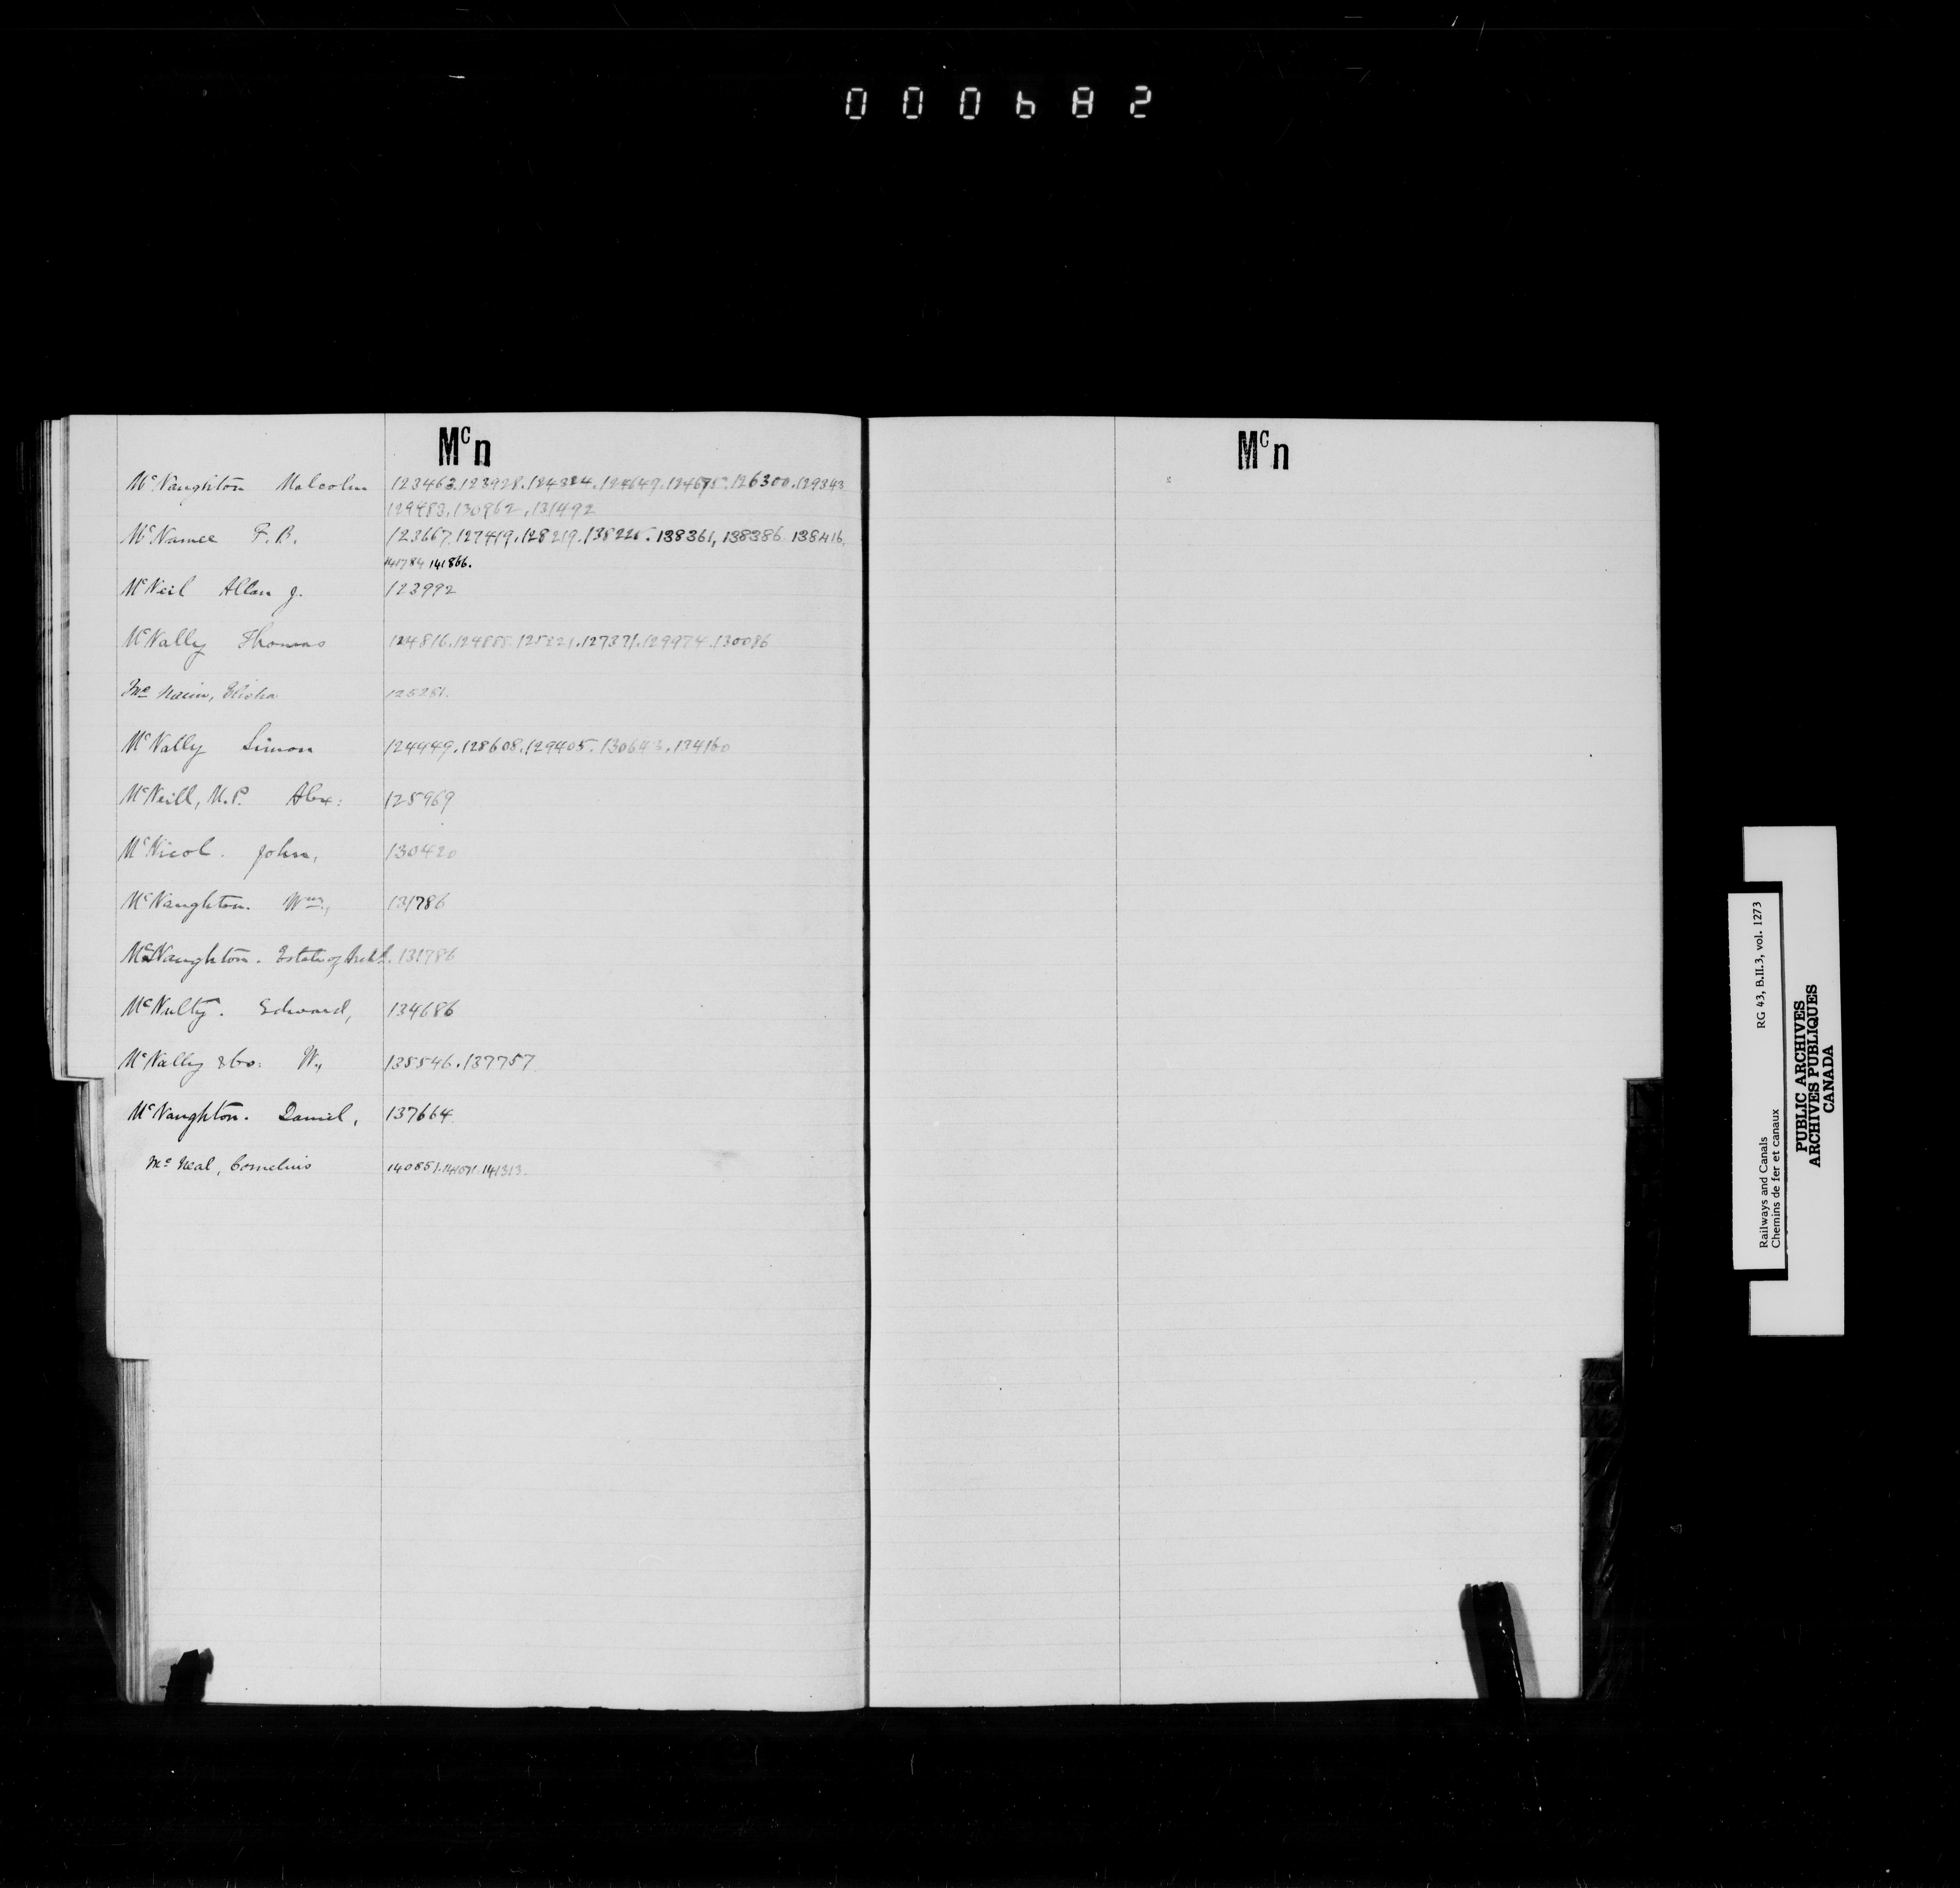 000682
Mc n
McNaughton Malcolm 123463.123928.124324.124649.124695.126300.129343
129483.130962.131492
McNamee F. B. 123667.127419.128219.138225.138361, 138386 138416.
141784 141866.
McNeil Allan J. 123992
McNally Thomas 124816.124888.125221.127371.129974.130086
Mc Nairn, Elisha 125281.
McNally Simon 124949.128608.129405.130643.134160
McNeill, M.P. Alex: 125969
McNicol. John, 130420
McNaughton. Wm., 131786
McNaughton. Estate of Archd. 131786
McNulty. Edward, 134686
McNally & Co: W., 135546.137757.
McNaughton. Daniel, 137664
Mc Neal, Cornelius 140851.141071.141313.
Mc n
Railways and Canals RG 43, B.II.3, vol. 1273
Chemins de fer et canaux
PUBLIC ARCHIVES
ARCHIVES PUBLIQUES
CANADA